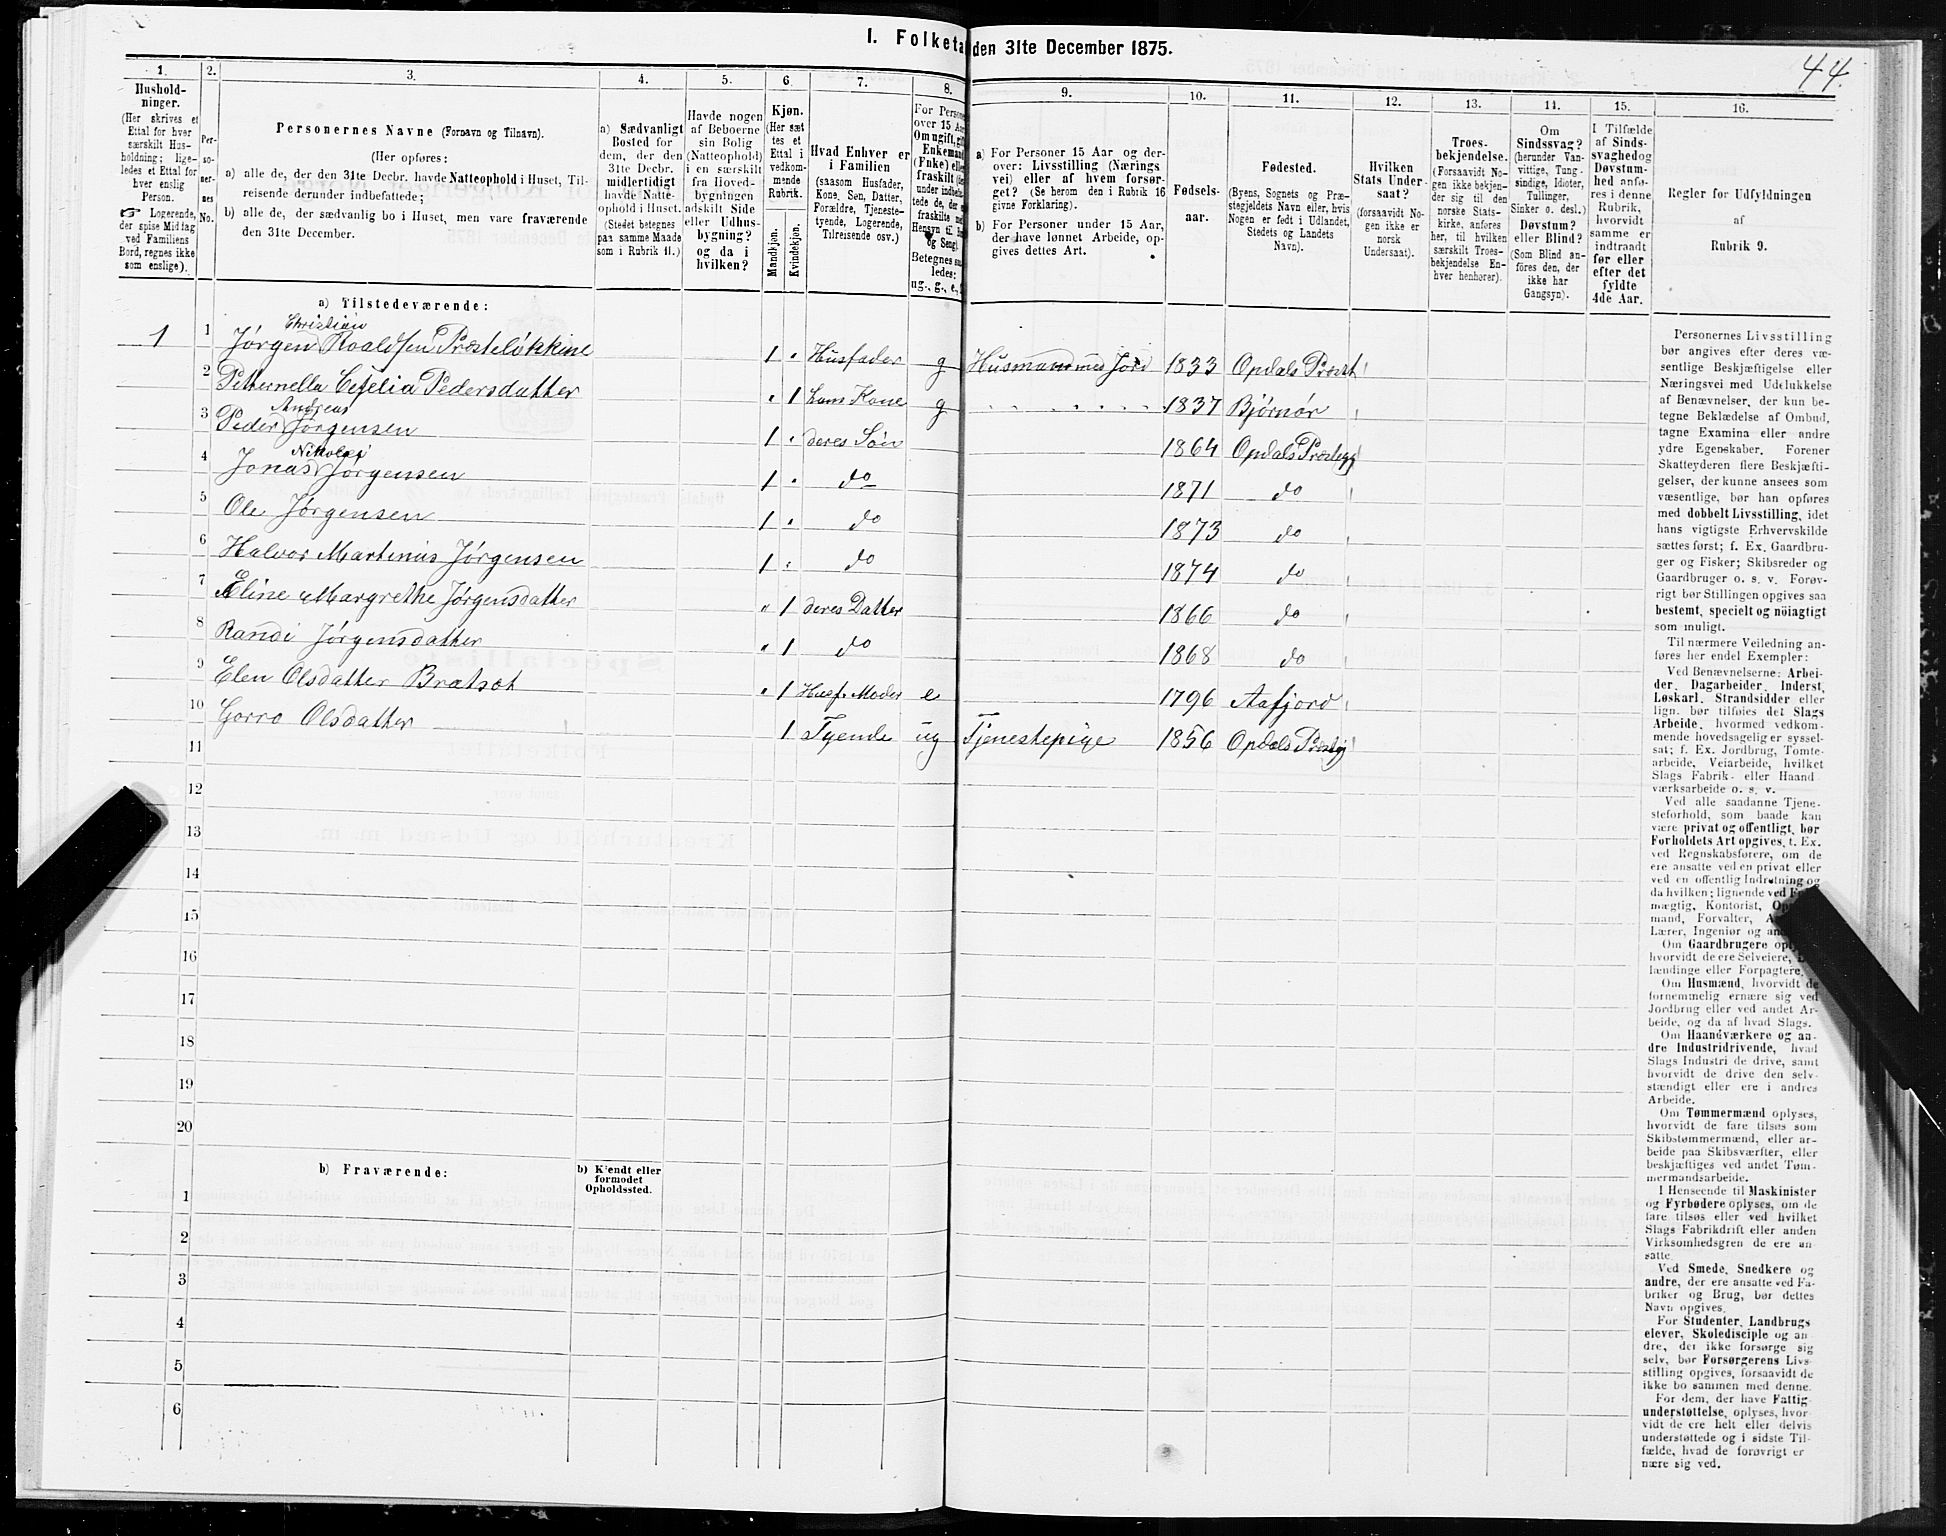 I. Folketa den 31te December 1875.
44.
1.
2.
3.
4.
5.
6.
7.
8.
9.
10.
11.
12.
13.
14.
15.
16.
Hushold-
ninger.
(Her skrives et
Ettal for hver
særskilt Hus-
holdning; lige-
ledes et Ettal for
hver enslig
Person.
☞ Logerende,
der spise Middag
ved Familiens
Bord, regnes ikke
som enslige).
Per-
so-
ner-
nes
No.
Personernes Navne (Fornavn og Tilnavn).
(Her opføres:
a) alle de, der den 31te Decbr. havde Natteophold i Huset, Til-
reisende derunder indbefattede;
b) alle de, der sædvanlig bo i Huset, men vare fraværende
den 31te December.
a) Sædvanligt
Bosted for
dem, der den
31te Decbr.
midlertidigt
havde Natte-
ophold i Huset.
(Stedet betegnes
paa samme Maade
som i Rubrik 11.)
Havde nogen
af Beboerne
sin Bolig
(Natteophold)
i en særskilt
fra Hoved-
bygningen
adskilt Side
eller Udhus-
bygning?
og da i
hvilken?
Kjøn.
(Her sæt
tes et
Ettal i
vedkom-
mende
Rubrik.
Mandkjøn.
Kvindekjøn.
Hvad Enhver er
i Familien
(saasom Husfader,
Kone, Søn, Datter,
Forældre, Tjeneste-
tyende, Logerende,
Tilreisende osv.)
For Perso
over 15 Aa
Om ugift, gift
Enkemand
(Enke) eller
fraskilt
under indbefat-
tede de, der e
fraskilte med
Hensyn til
og Seng).
Betegnes saa
ledes:
ug., g., e.,
a) For Personer 15 Aar og der-
over: Livsstilling (Nærings
vei) eller af hvem forsør-
get? (Se herom den i Rubrik 16
givne Forklaring).
b) For Personer under 15 Aar,
der have lønnet Arbeide, op-
gives dettes Art.
Fødsels-
aar.
Fødested.
(Byens, Sognets og Præ-
stegjeldets Navn eller, hvis
Nogen er født i Udlandet,
Stedets og Landets
Navn).
Hvilken
Stats Under-
saat?
(forsaavidt No-
gen ikke er
norsk
Undersaat).
Troes-
bekjendelse.
(Forsaavidt No-
gen ikke bekjen-
der sig til den
norske Stats-
kirke, anføres
her, til hvilken
særskilt Troes-
bekjendelse En-
hver henhører).
Om
Sindssvag?
(herunder Van-
vittige, Tung-
sindige, Idioter,
Tullinger,
Sinker o. desl.)
Døvstum?
eller Blind?
(Som Blind an-
føres den, der
ikke har
Gangsyn).
I Tilfælde
af Sinds-
svaghed og
Døvstum-
hed anfø-
res i denne
Rubrik,
hvorvidt
samme er
indtraadt
før eller
efter det
fyldte
4de Aar.
Regler for Udfyldningen
af
Rubrik 9.
a) Tilstedeværende:
Christian
1 1 Jørgen Roaldsen Præsteløkkine 1 " Husfader g Husmand med Jord 1833 Opdals Præst
2 Petternella Cecelia Pedersdatter " 1 hans Kone g " 1837 Bjørnør
Andreas
3 Peder Jørgensen 1 " deres Søn 1864 Opdals Præsteg
Nikolai
4 Jonas Jørgensen 1 " do 1871 do
5 Ole Jørgensen 1 " do 1873 do
6 Halvor Martinus Jørgensen 1 " do 1874 do
7 Eline Margrethe Jørgensdatter " 1 deres Datter 1866 do
8 Randi Jørgensdatter " 1 do 1868 do
9 Elen Olsdatter Brætsæt " 1 Husf. Moder e 1796 Aafjord
10 Gorro Olsdatter 1 Tyende ug Tjenestepige 1856 Opdals Præstgj
11
12
13
14
15
16
17
18
19
20
b) Fraværende:
b) Kjendt eller
formodet
Opholdssted.
1
2
3
4
5
6
Personernes Livsstilling
bør angives efter deres væ-
sentlige Beskjæftigelse eller
Næringsvei med Udelukkelse
af Benævnelser, der kun be-
tegne Beklædelse af Ombud,
tagne Examina eller andre
ydre Egenskaber. Forener
Skatteyderen flere Beskjæfti-
gelser, der kunne ansees som
væsentlige, bør han opføres
med dobbelt Livsstilling, idet
hans vigtigste Erhvervskilde
sættes først; f. Ex. Gaardbru-
ger og Fisker; Skibsreder og
Gaardbruger o. s. v. Forøv-
rigt bør Stillingen opgives saa
bestemt, specielt og nöiagtigt
som muligt.
Til nærmere Veiledning an-
føres her endel Exempler:
Ved Benævnelserne: Arbei-
der, Dagarbeider, Inderst,
Løskarl, Strandsidder eller
lign. bør tilføies det Slags
Arbeide, hvormed vedkom-
mende hovedsagelig er syssel-
sat; f. Ex. Jordbrug, Tomte-
arbeide, Veiarbeide, hvilket
Slags Fabrik- eller Haand-
værksarbeide o. s. v.
Ved alle saadanne Tjene-
steforhold, som baade kan
være privat og offentligt, bør
Forholdets Art opgives, t. Ex.
ved Regnskabsførere, om de
ere ansatte ved en privat eller
ved en offentlig Indretning og
da hvilken; lignende ved
mægtig, Kontorist,
mand, Forvalter,
Lærer, Ingeniør og
Om Gaardbrugere
hvorvidt de ere Selveiere,
lændinge eller Forpagtere.
Om Husmænd, hvorvidt de
fornemmelig ernære sig ved
Jordbrug eller ved andet Ar-
beide, og da af hvad Slags.
Om Haandværkere og an-
dre Industridrivende, hvad
Slags Industri de drive, samt
hvorvidt de drive den selv-
stændigt eller ere i andres
Arbeide.
Om Tømmermænd oplyses,
hvorvidt de fare tilsøs som
Skibstømmermænd, eller ar-
beide paa Skibsværfter, eller
beskjæftiges ved andet Tøm-
mermandsarbeide.
I Henseende til Maskinister
og Fyrbødere oplyses, om de
fare tilsøs eller ved hvilket
Slags Fabrikdrift eller anden
Virksomhedsgren de ere an-
satte.
Ved Smede, Snedkere og
andre, der ere ansatte ved Fa-
briker og Brug, bør dettes
Navn opgives.
For Studenter, Landbrugs
elever, Skoledisciple og an-
dre, der ikke forsørge sig
selv, bør Forsørgerens Livs-
stilling opgives, forsaavidt de
ikke bo sammen med denne.
For dem, der have Fattig-
understøttelse, oplyses, hvor-
vidt de ere helt eller delvis
understøttede og i sidste Til-
fælde, hvad de forøvrigt er
nære sig ved.